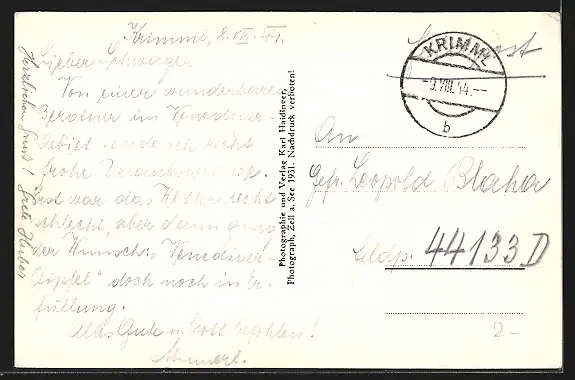 Krimml, 8.VII.44.
Lieber Schwager
Von einer wunderbaren
Bergtour im Venediger-
Gebiet sende ich recht
frohe Urlaubsgrüsse.
Erst war das Wetter recht
schlecht, aber dann ging
der Wunsch: „Venediger
Gipfel" doch noch in Er-
füllung.
Alles Gute u. Gott befohlen!
Herzlichen Gruß! Grete Huber
Photographie und Verlag Karl Haidinger,
Photograph, Zell a. See 1931. Nachdruck verboten!
Feldpost
KRIMML
-9.VIII.44.--
b
An
Gefr. Leopold Blaha
Feldp. 44133 D
2-